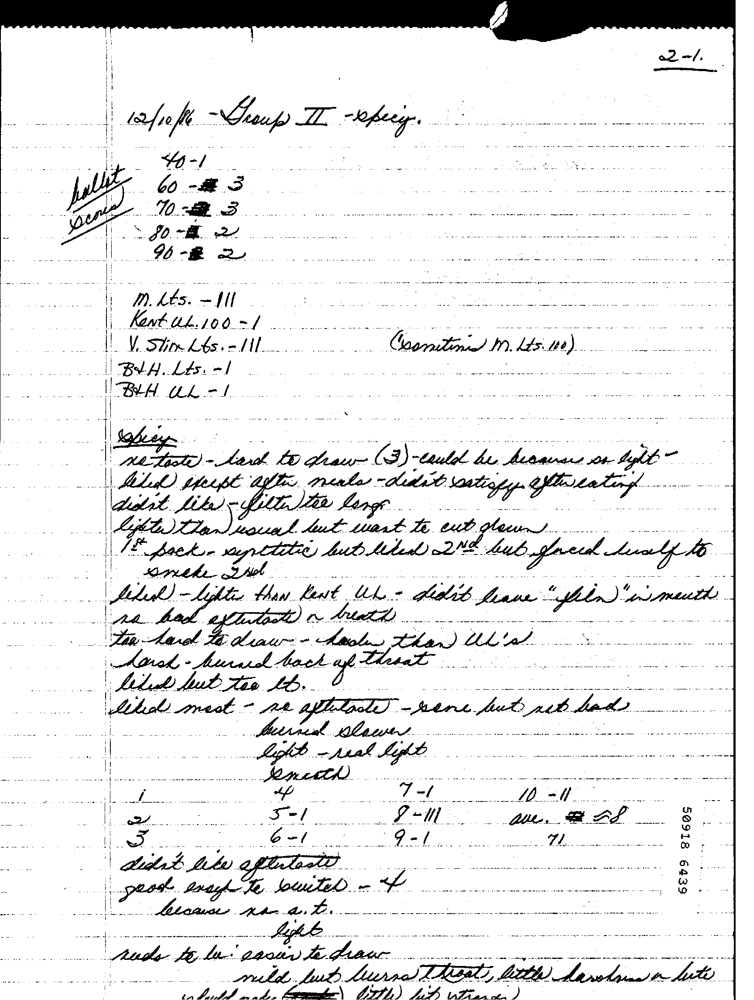 2-1.
12/10/86 - Group II - spicy.
ballot
scores
40-1
60 - 3
70 - 3
80 - 2
90 - 2
M. Lts. - III
Kent UL. 100 - 1
V. Slim Lts. - III (sometimes M. Lts. 100)
B&H. Lts. - 1
B&H UL - 1
spicy
no taste - hard to draw (3) - could be because so light -
liked except after meals - didn't satisfy after eating
didn't like - filter too long
lighter than usual but want to cut down
1st pack - synthetic but liked 2nd but forced herself to
smoke 2nd
liked - lighter than Kent UL - didn't leave "film" in mouth
no bad aftertaste on breath
too hard to draw - harder than UL's
harsh - burned back of throat
liked but too lt.
liked most - no aftertaste - some but not bad
burned slower
light - real light
smooth
1 4 7-1 10-11
2 5-1 8-111 ave. ≈8
3 6-1 9-1 71
didn't like aftertaste
good enough to switch - 4
because no a.t.
light
needs to be: easier to draw
mild but burns throat, little harshness or bite
should make little bit stronger)
50918 6439